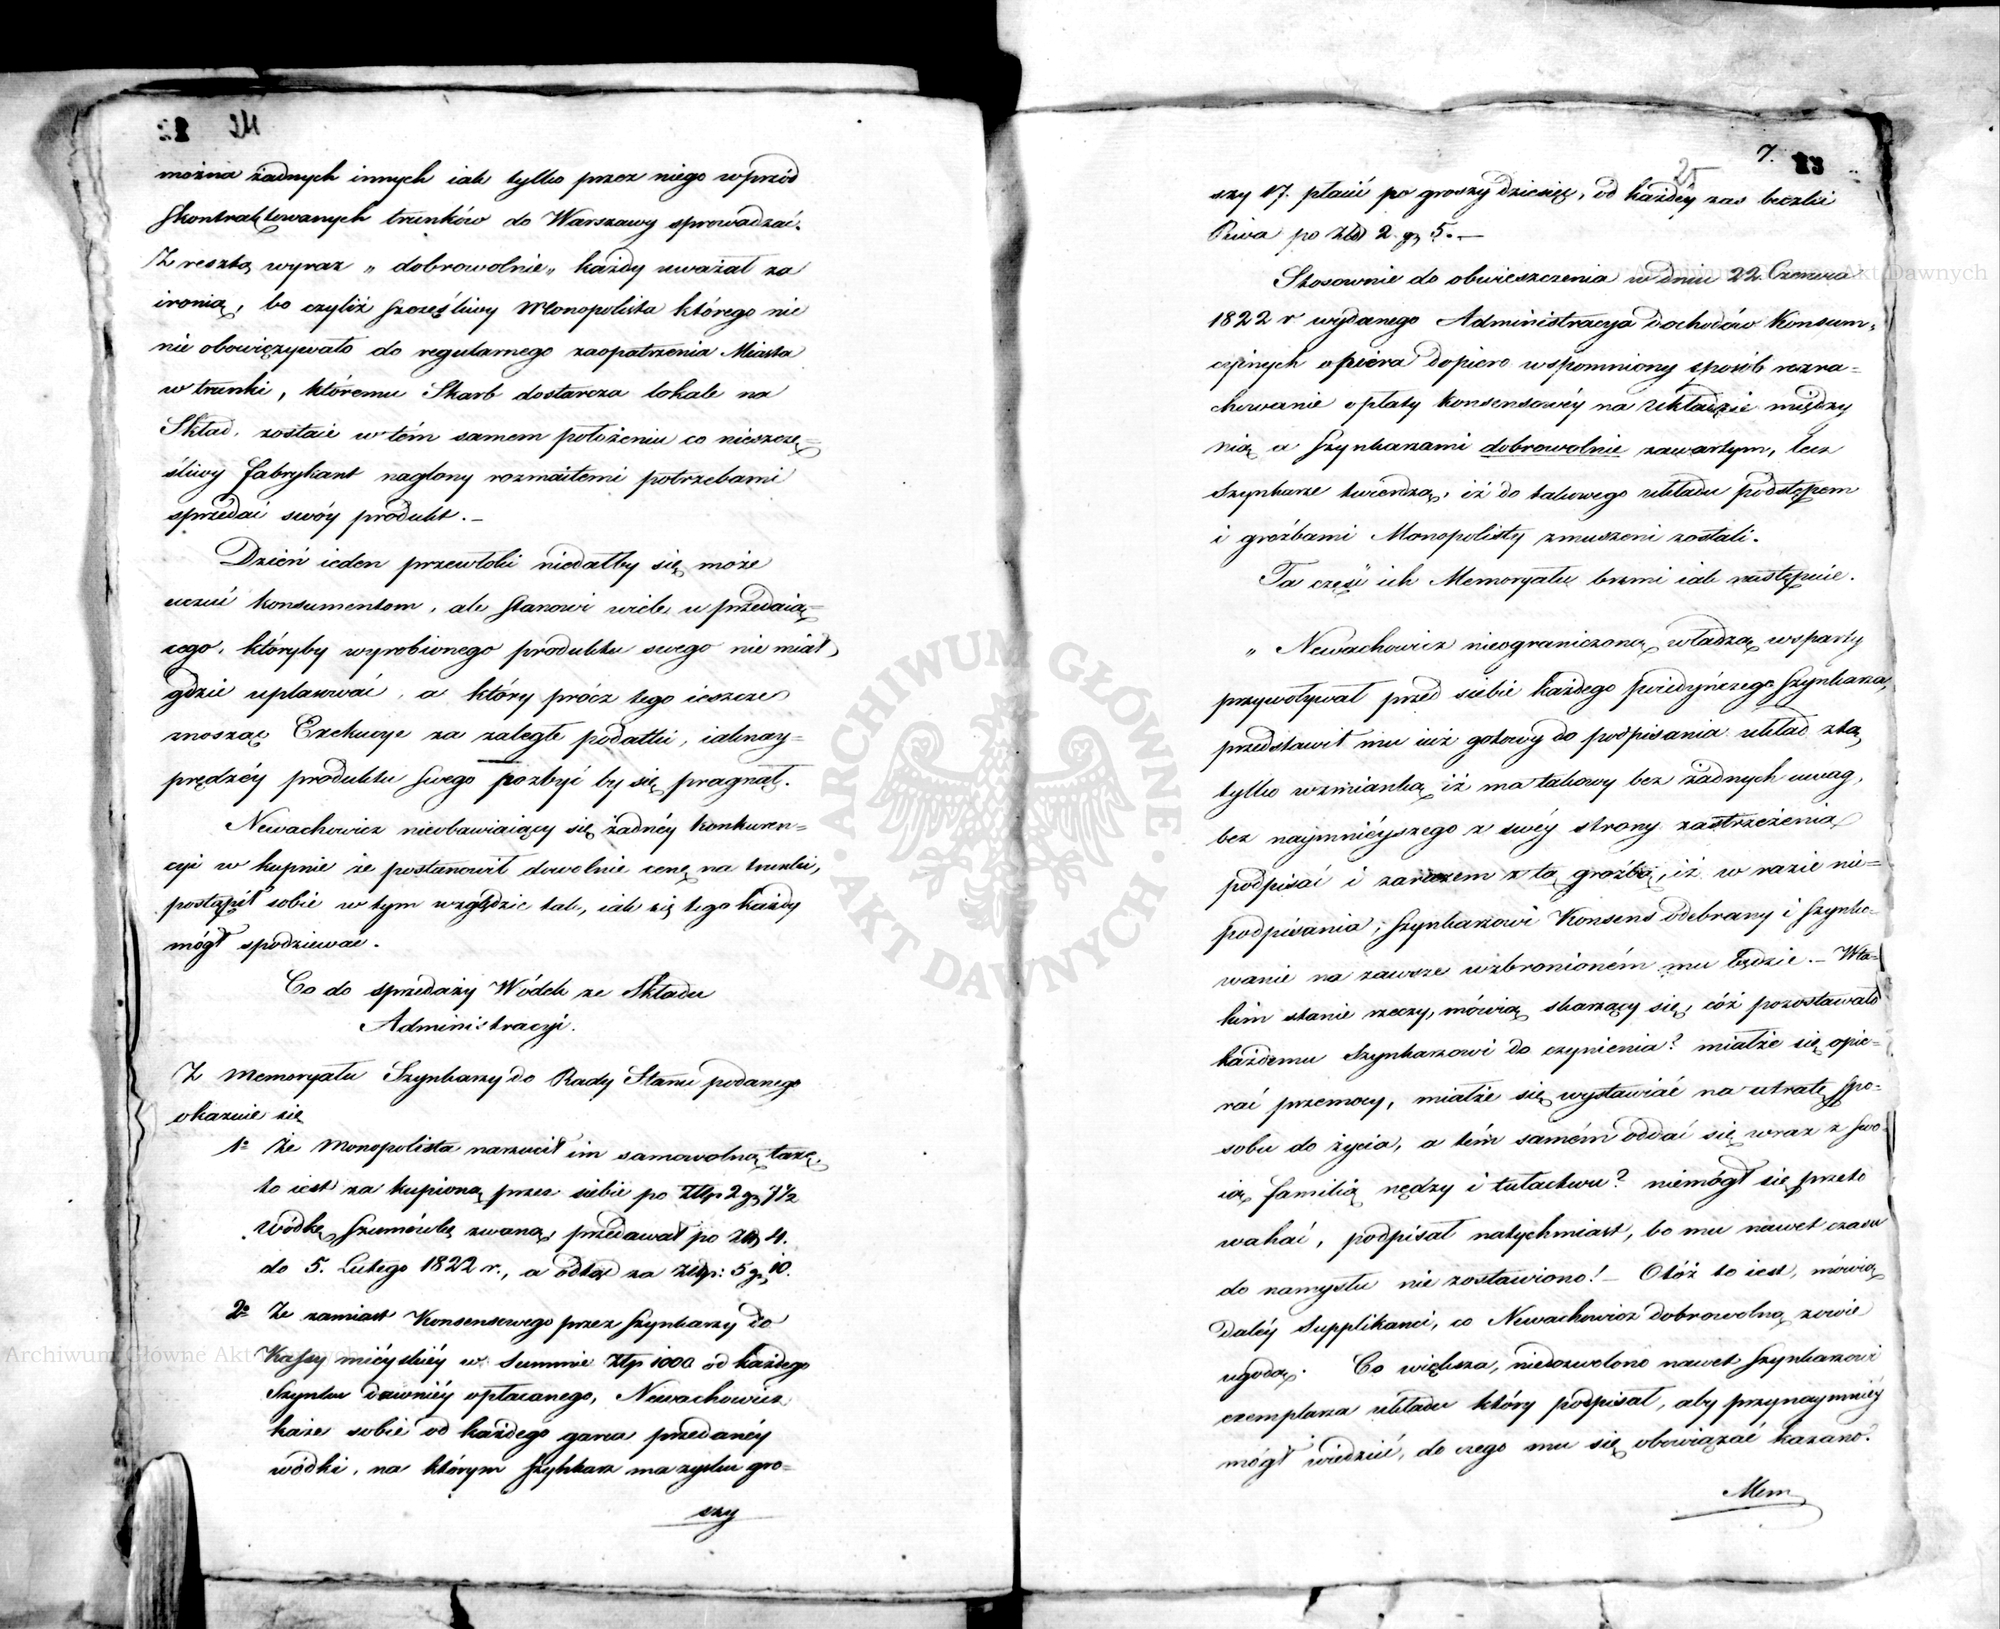 24
można żadnych innych iak tylko przez niego wprzód
skontraktowanych trunków do Warszawy sprowadzać.
Zresztą wyraz „ dobrowolnie „ każdy uważał za
ironią, bo czyliż szczęśliwy Monopolista którego nic
nie obowięzywało do regularnego zaopatrzenia Miasta
w trunki, któremu Skarb dostarcza lokale na
Skład, zostaie w tém samem położeniu co nieszczę=
śliwy fabrykant naglony rozmaitemi potrzebami
sprzedać swóy produkt. –
Dzień ieden przewłoki niedałby się może
uczuć konsumentom, ale stanowi wiele u przedaią=
cego, któryby wyrobionego produktu swego nie miał
gdzie uplasować, a który prócz tego ieszcze
znosząc Exekucye za zaległe podatki, iaknay=
prędzéy produktu swego pozbyć by się pragnął.
Newachowicz nieobawiaiący się żadnéy konkuren=
cyi w kupnie że postanowił dowolnie cenę na trunki,
postąpił sobie w tym względzie tak, iak się tego każdy
mógł spodziewać.
Co do sprzedaży Wódek ze Składu
Administracyi.
Z Memoryału Szynkarzy do Rady Stanu podanego
okazuie się
1º Że Monopolista narzucił im samowolną taxę,
to iest za kupioną przez siebie po Złp 2 gr 7½
wódkę Szumówką zwaną, przedawał po Złp 4.
do 5. Lutego 1822 r., a odtąd za Złp: 5 gr 10.
2º Że zamiast Konsensowego przez Szynkarzy do
Kassy mieyskiéy w Summie Złp 1000 od każdego
Szynku dawniéy opłacanego, Newachowicz
każe sobie od każdego garca przedanéy
wódki, na którym Szynkarz ma zysku gro=
szy
7.
25
23
szy 17. płacić po groszy dziesięć, od każdéy zaś beczki
Piwa po Złp 2. gr 5. –
Stosownie do obwieszczenia w dniu 22. Czerwca
1822 r wydanego Administracya Dochodów Konsum=
cyinych opiera dopiero wspomniony sposób rozra=
chowanie opłaty konsensowéy na układzie między
nią a Szynkarzami dobrowolnie zawartym, lecz
Szynkarze twierdzą, iż do takowego układu podstępem
i groźbami Monopolisty zmuszeni zostali.
Ta część ich Memoryału brzmi iak następuie.
„ Newachowicz nieograniczoną władzą wsparty
przywoływał przed siebie każdego poiedyńczego Szynkarza,
przedstawił mu iuż gotowy do podpisania układ z tą
tylko wzmianką, iż ma takowy bez żadnych uwag,
bez naymnieyszego z swéy strony zastrzeżenia
podpisać i zarazem z tą groźbą, iż w razie nie=
podpisania, Szynkarzowi Konsens odebrany i Szynko=
wanie na zawsze wzbronioném mu będzie. – W ta=
kim stanie rzeczy, mówią skarżący się, cóż pozostawało
każdemu Szynkarzowi do czynienia? miałże się opie=
rać przemocy, miałże się wystawiać na utratę spo=
sobu do życia, a tém samém oddać się wraz z swo=
ią familią nędzy i tułactwu? niemógł się przeto
wahać, podpisał natychmiast, bo mu nawet czasu
do namysłu nie zostawiono! – Otóż to iest, mówią
daléy Supplikanci, co Newachowicz dobrowolną zowie
ugodą. Co większa, niedozwolono nawet Szynkarzowi
exemplarza układu który podpisał, aby przynaymniéy
mógł wiedzieć, do czego mu się obowiązać kazano.
Mem